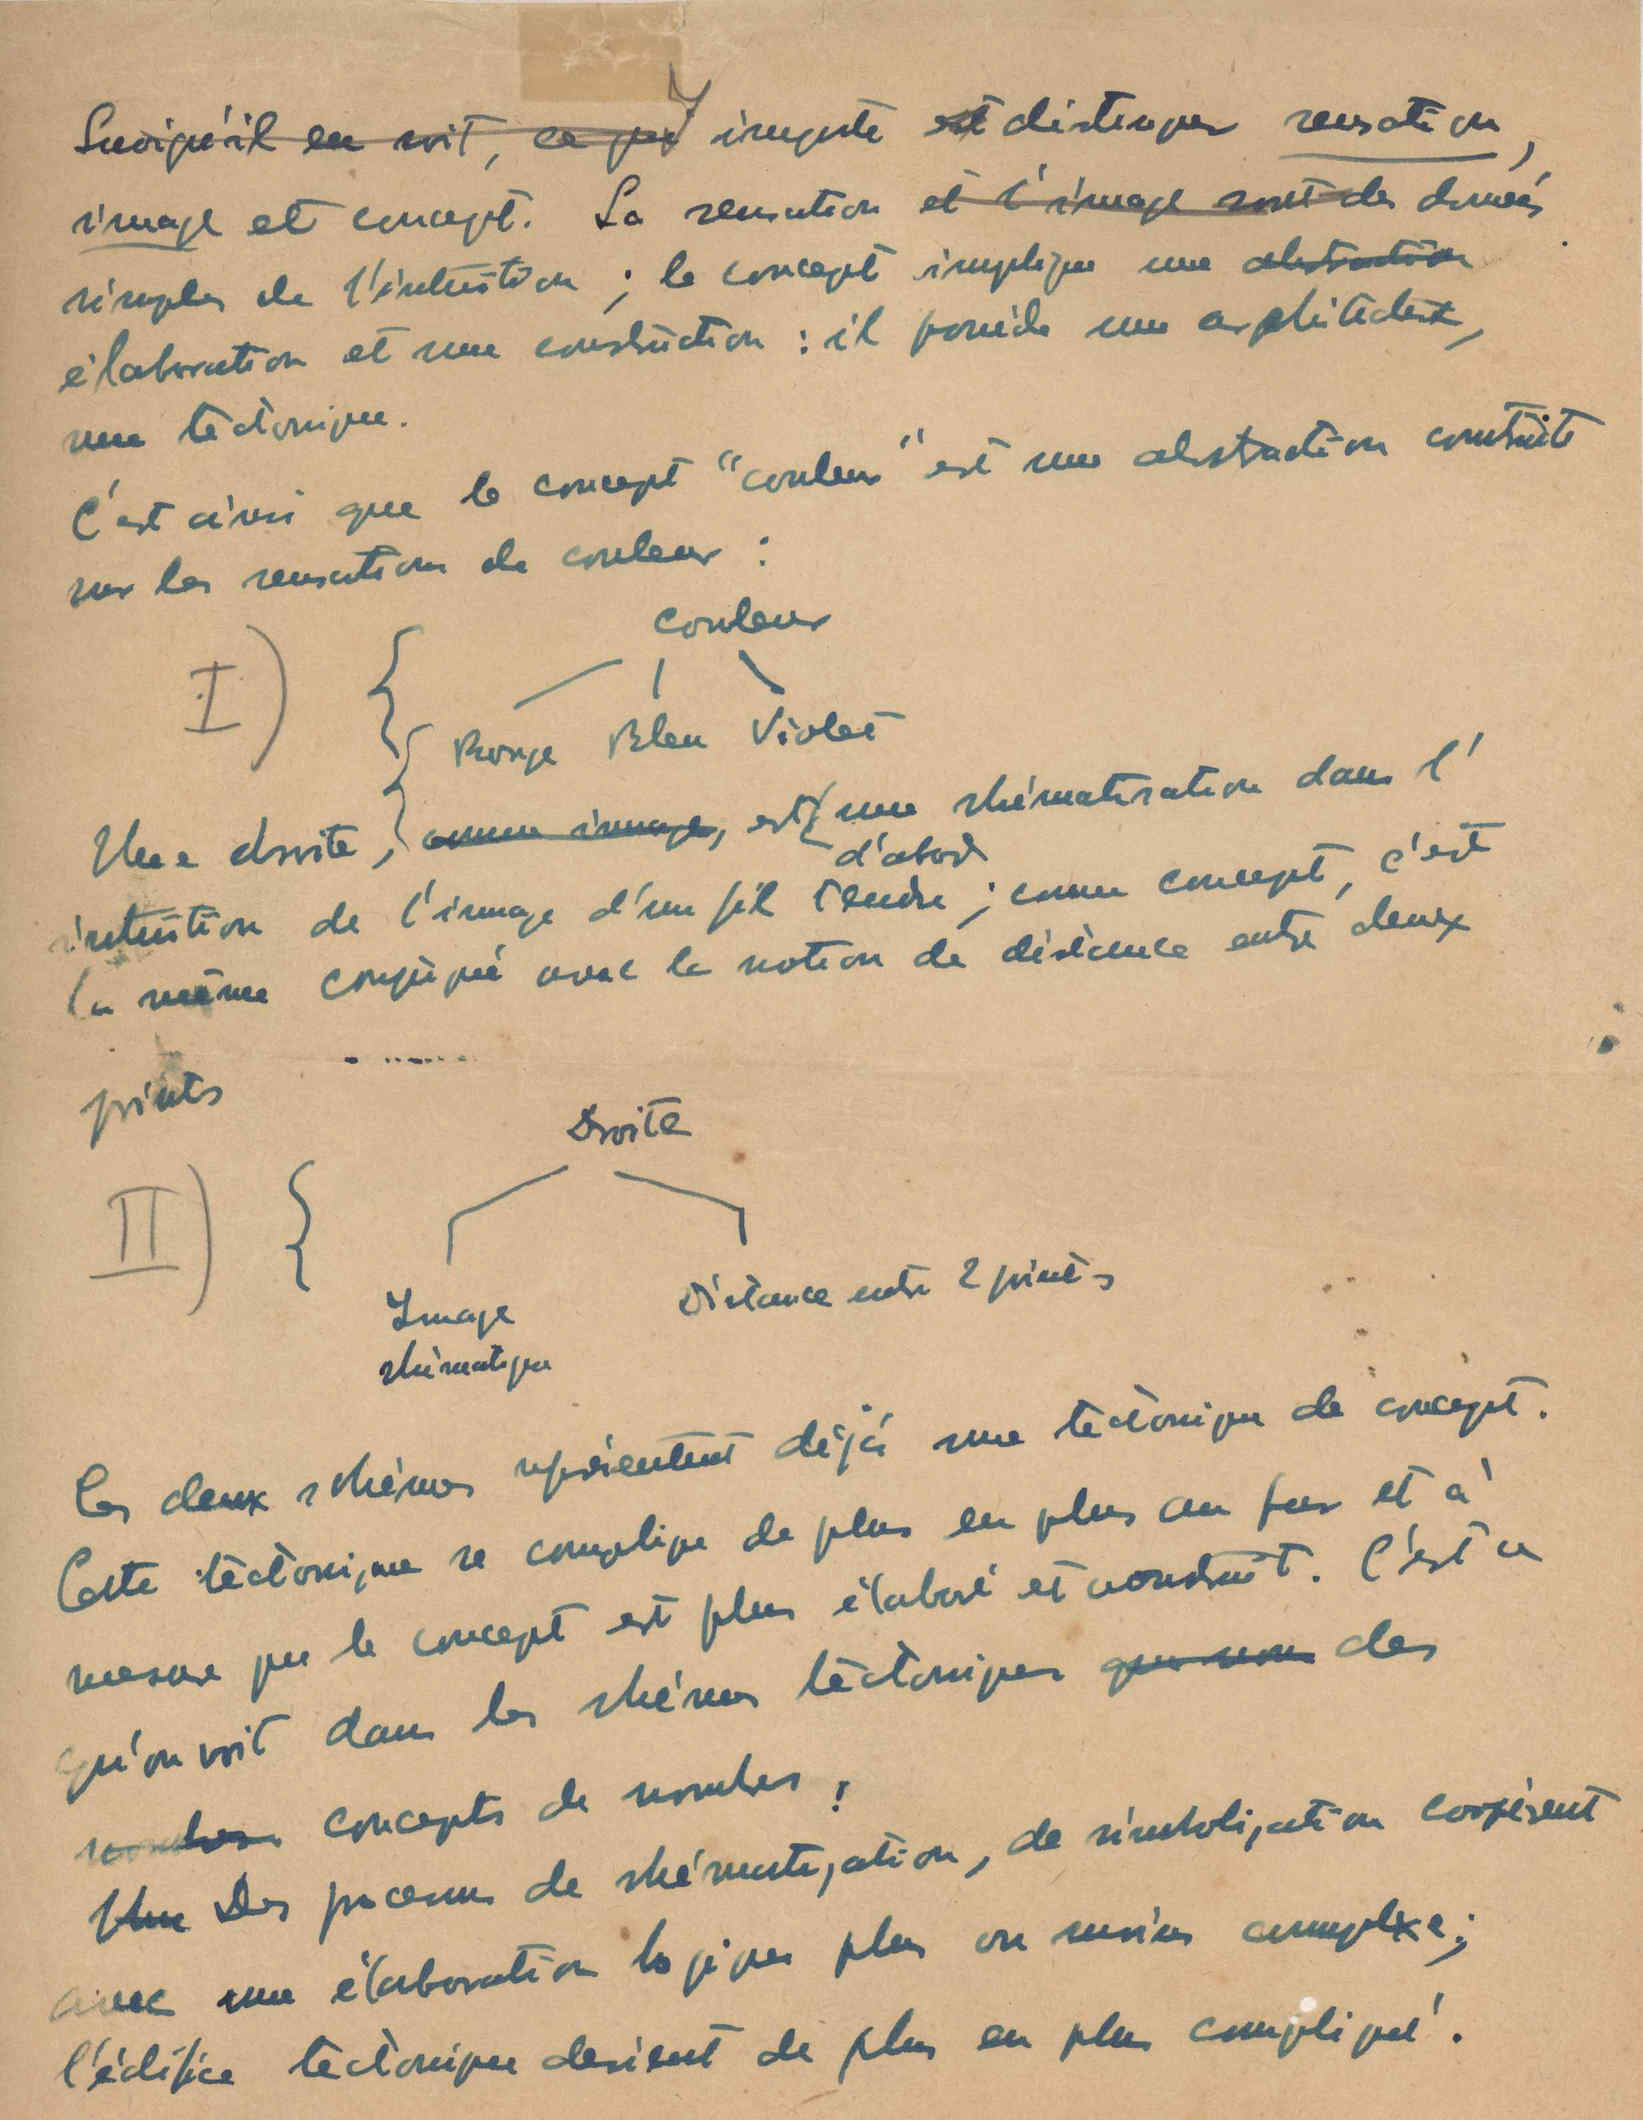 Quoiqu'il en soit, ce qui Y importe est distinguer sensation,
image et concept. La sensation et l'image sont des donnés
simples de l'intuition ; le concept implique une abstraction
élaboration et une construction : il possède une architecture,
une tectonique.
C'est ainsi que le concept "couleur" est une abstraction construite
sur les sensations de couleur :
Couleur
I) {
Rouge Bleu Violet
Une droite, { comme image, est { une schématisation dans l'
d'abord
intuition de l'image d'un fil tendu ; comme concept, c'est
la même conjugué avec la notion de distance entre deux
points
Droite
II) {
Image Distance entre 2 points
schématique
Les deux schémas représentent déjà une tectonique de concept.
Cette tectonique se complique de plus en plus au fur et à
mesure que le concept est plus élaboré et construit. C'est ce
qu'on voit dans les schémas tectoniques que nous des
nombres concepts de nombres :
Une Des processus de schématisation, de simbolisation coopèrent
avec une élaboration logique plus ou moins complexe ;
l'édifice tectonique devient de plus en plus compliqué.